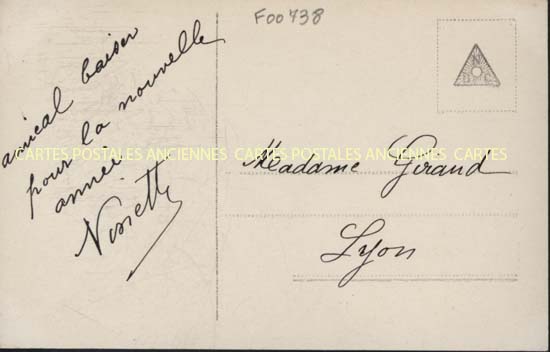 Foo738
amical baiser
pour la nouvelle
année
Ninette
N
D C
CARTES POSTALES ANCIENNES CARTES POSTALES ANCIENNES CARTES
Madame Giraud
Lyon